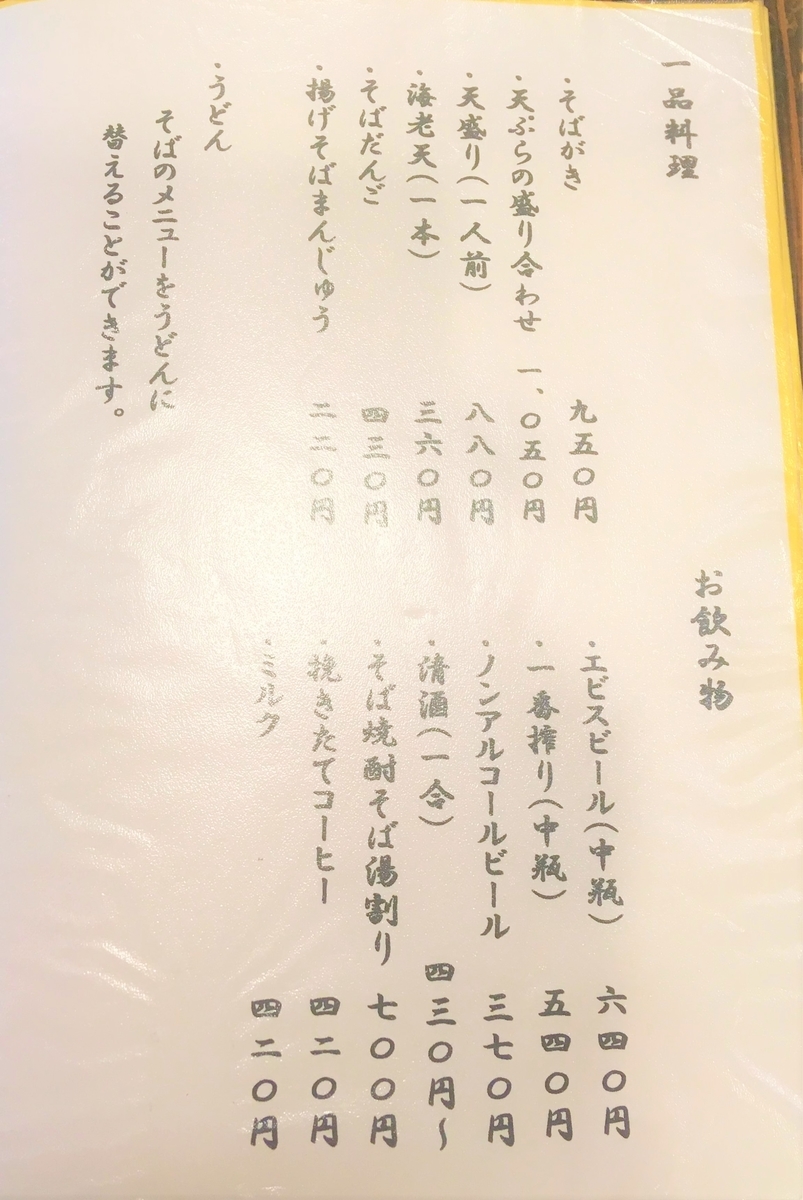 一品料理
・そばがき 九五〇円
・天ぷらの盛り合わせ 一、〇五〇円
・天盛り(一人前) 八八〇円
・海老天(一本) 三六〇円
・そばだんご 四三〇円
・揚げそばまんじゅう 二二〇円
・うどん
そばのメニューをうどんに
替えることができます。
お飲み物
・エビスビール(中瓶) 六四〇円
・一番搾り(中瓶) 五四〇円
・ノンアルコールビール 三七〇円
・清酒(一合) 四三〇円~
・そば焼酎そば湯割り 七〇〇円
・挽きたてコーヒー 四二〇円
・ミルク 四二〇円